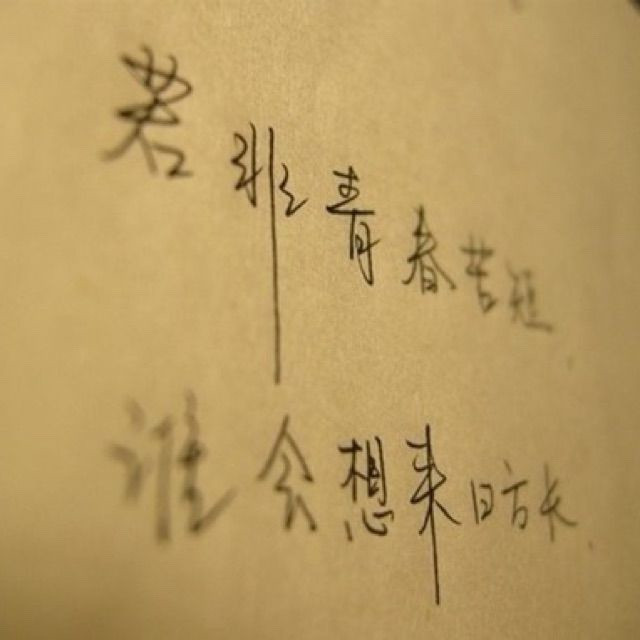 若非青春苦短.
谁会想来日方长.